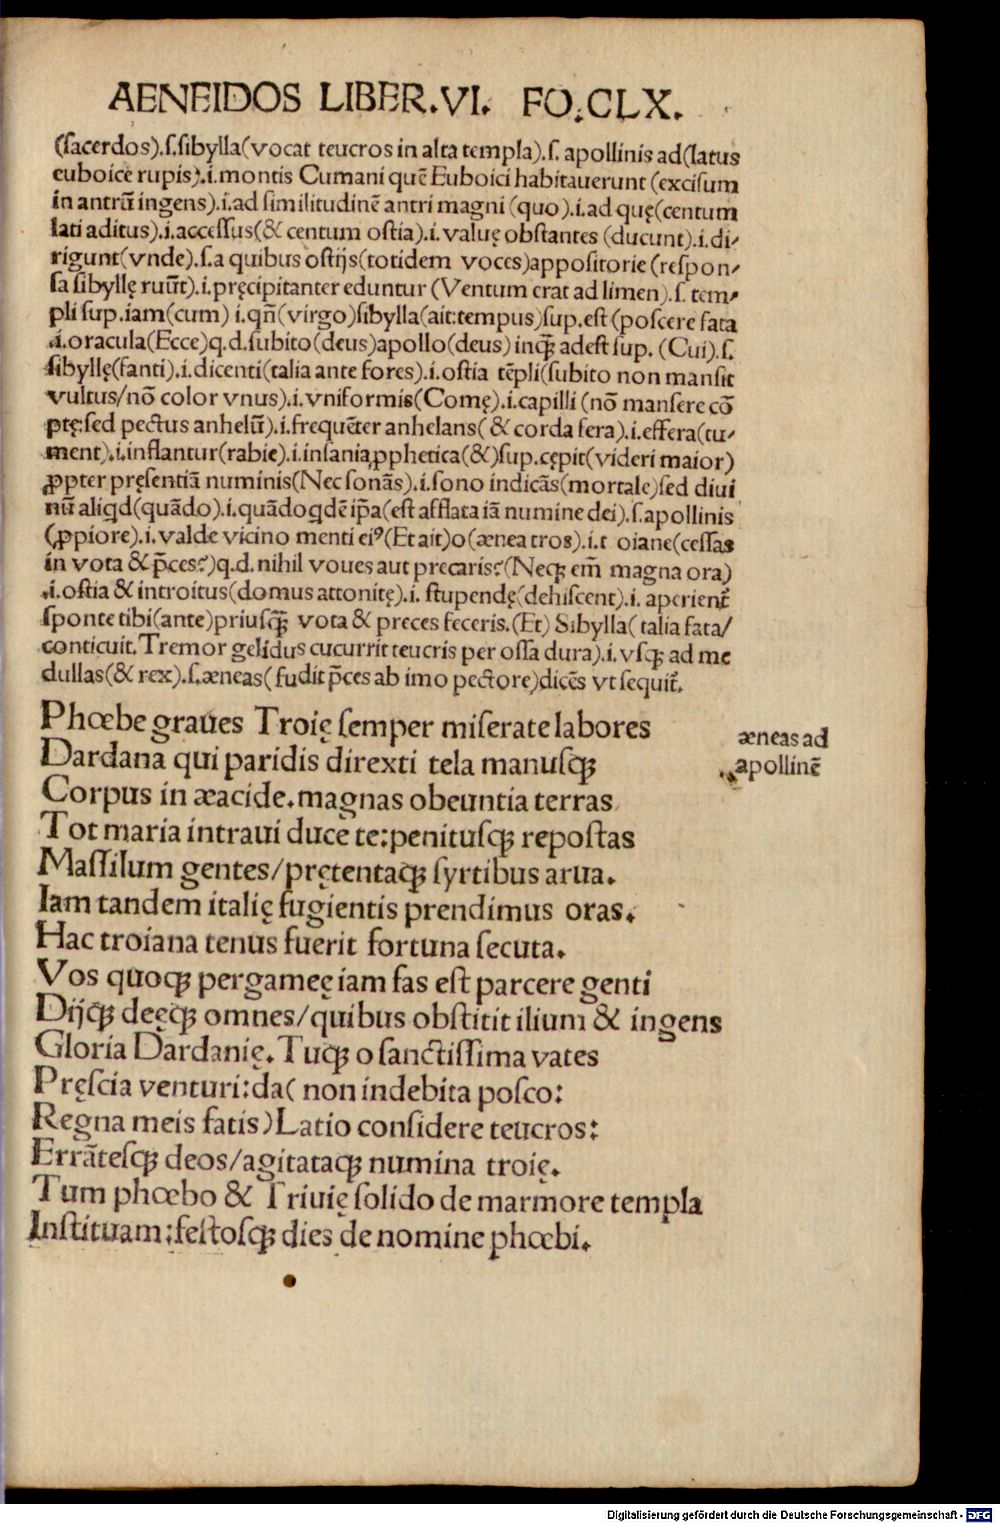 AENEIDOS LIBER.VI. FO.CLX.
(ſacerdos).ſ.ſibylla(vocat teucros in alta templa).ſ. apollinis ad(latus
euboicę rupis).i.montis Cumani quē Euboici habitauerunt (exciſum
in antrū ingens).i.ad ſimilitudinē antri magni (quo).i.ad quę(centum
lati aditus).i.acceſſus(& centum oſtia).i.valuę obſtantes (ducunt).i.di⸗
rigunt(vnde).ſ.a quibus oſtijs(totidem voces)appoſitorie(reſpon⸗
ſa ſibyllę ruūt).i.pręcipitanter eduntur (Ventum erat ad limen).ſ. tem⸗
pli ſup.iam(cum) i.qñ(virgo)ſibylla(ait:tempus)ſup.eſt (poſcere fata
.i.oracula(Ecce)q.d.ſubito(deus)apollo(deus) inqꝫ adeſt ſup. (Cui).ſ.
ſibyllę(fanti).i.dicenti(talia ante fores).i.oſtia tēpli(ſubito non manſit
vultus/nō color vnus).i.vniformis(Comę).i.capilli (nō manſere cō
ptę:ſed pectus anhelū).i.frequēter anhelans( & corda fera).i.effera(tu⸗
ment).i.inflantur(rabie).i.inſania ꝓphetica(&)ſup.cępit(videri maior)
ꝓpter pręſentiā numinis(Nec ſonās).i.ſono indicās(mortale)ſed diui
nū aliqd(quādo).i.quādoqdē ip̄a(eſt afflata iā numine dei).ſ.apollinis
(ꝓpiore).i.valde vicino menti eiꝰ(Et ait)o(ænea tros).i.t oiane(ceſſas
in vota & p̄ces?)q.d.nihil voues aut precaris?(Neqꝫ em̄ magna ora)
.i.oſtia & introitus(domus attonitę).i. ſtupendę(dehiſcent).i. aperient̄
ſponte tibi(ante)priuſqꝫ̄ vota & preces feceris.(Et) Sibylla( talia fata/
conticuit.Tremor gelidus cucurrit teucris per oſſa dura).i.vſqꝫ ad me
dullas(& rex).ſ.æneas( fudit p̄ces ab imo pectore)dicēs vt ſequit̄.
Phœbe graues Troię ſemper miſerate labores
æneas ad
Dardana qui paridis direxti tela manuſqꝫ
apollinē
Corpus in æacidę.magnas obeuntia terras
Tot maria intraui duce te:penituſqꝫ repoſtas
Maſſilum gentes/prętentaqꝫ ſyrtibus arua.
Iam tandem italię fugientis prendimus oras.
Hac troiana tenus fuerit fortuna ſecuta.
Vos quoqꝫ pergameę iam fas eſt parcere genti
Dijqꝫ deęqꝫ omnes/quibus obſtitit ilium & ingens
Gloria Dardanię.Tuqꝫ o ſanctiſſima vates
Pręſcia venturi:da( non indebita poſco:
Regna meis fatis)Latio conſidere teucros:
Errāteſqꝫ deos/agitataqꝫ numina troię.
Tum phœbo & Triuię ſolido de marmore templa
Inſtituam:feſtoſqꝫ dies de nomine phœbi.
Digitalisierung gefördert durch die Deutsche Forschungsgemeinschaft - DFG